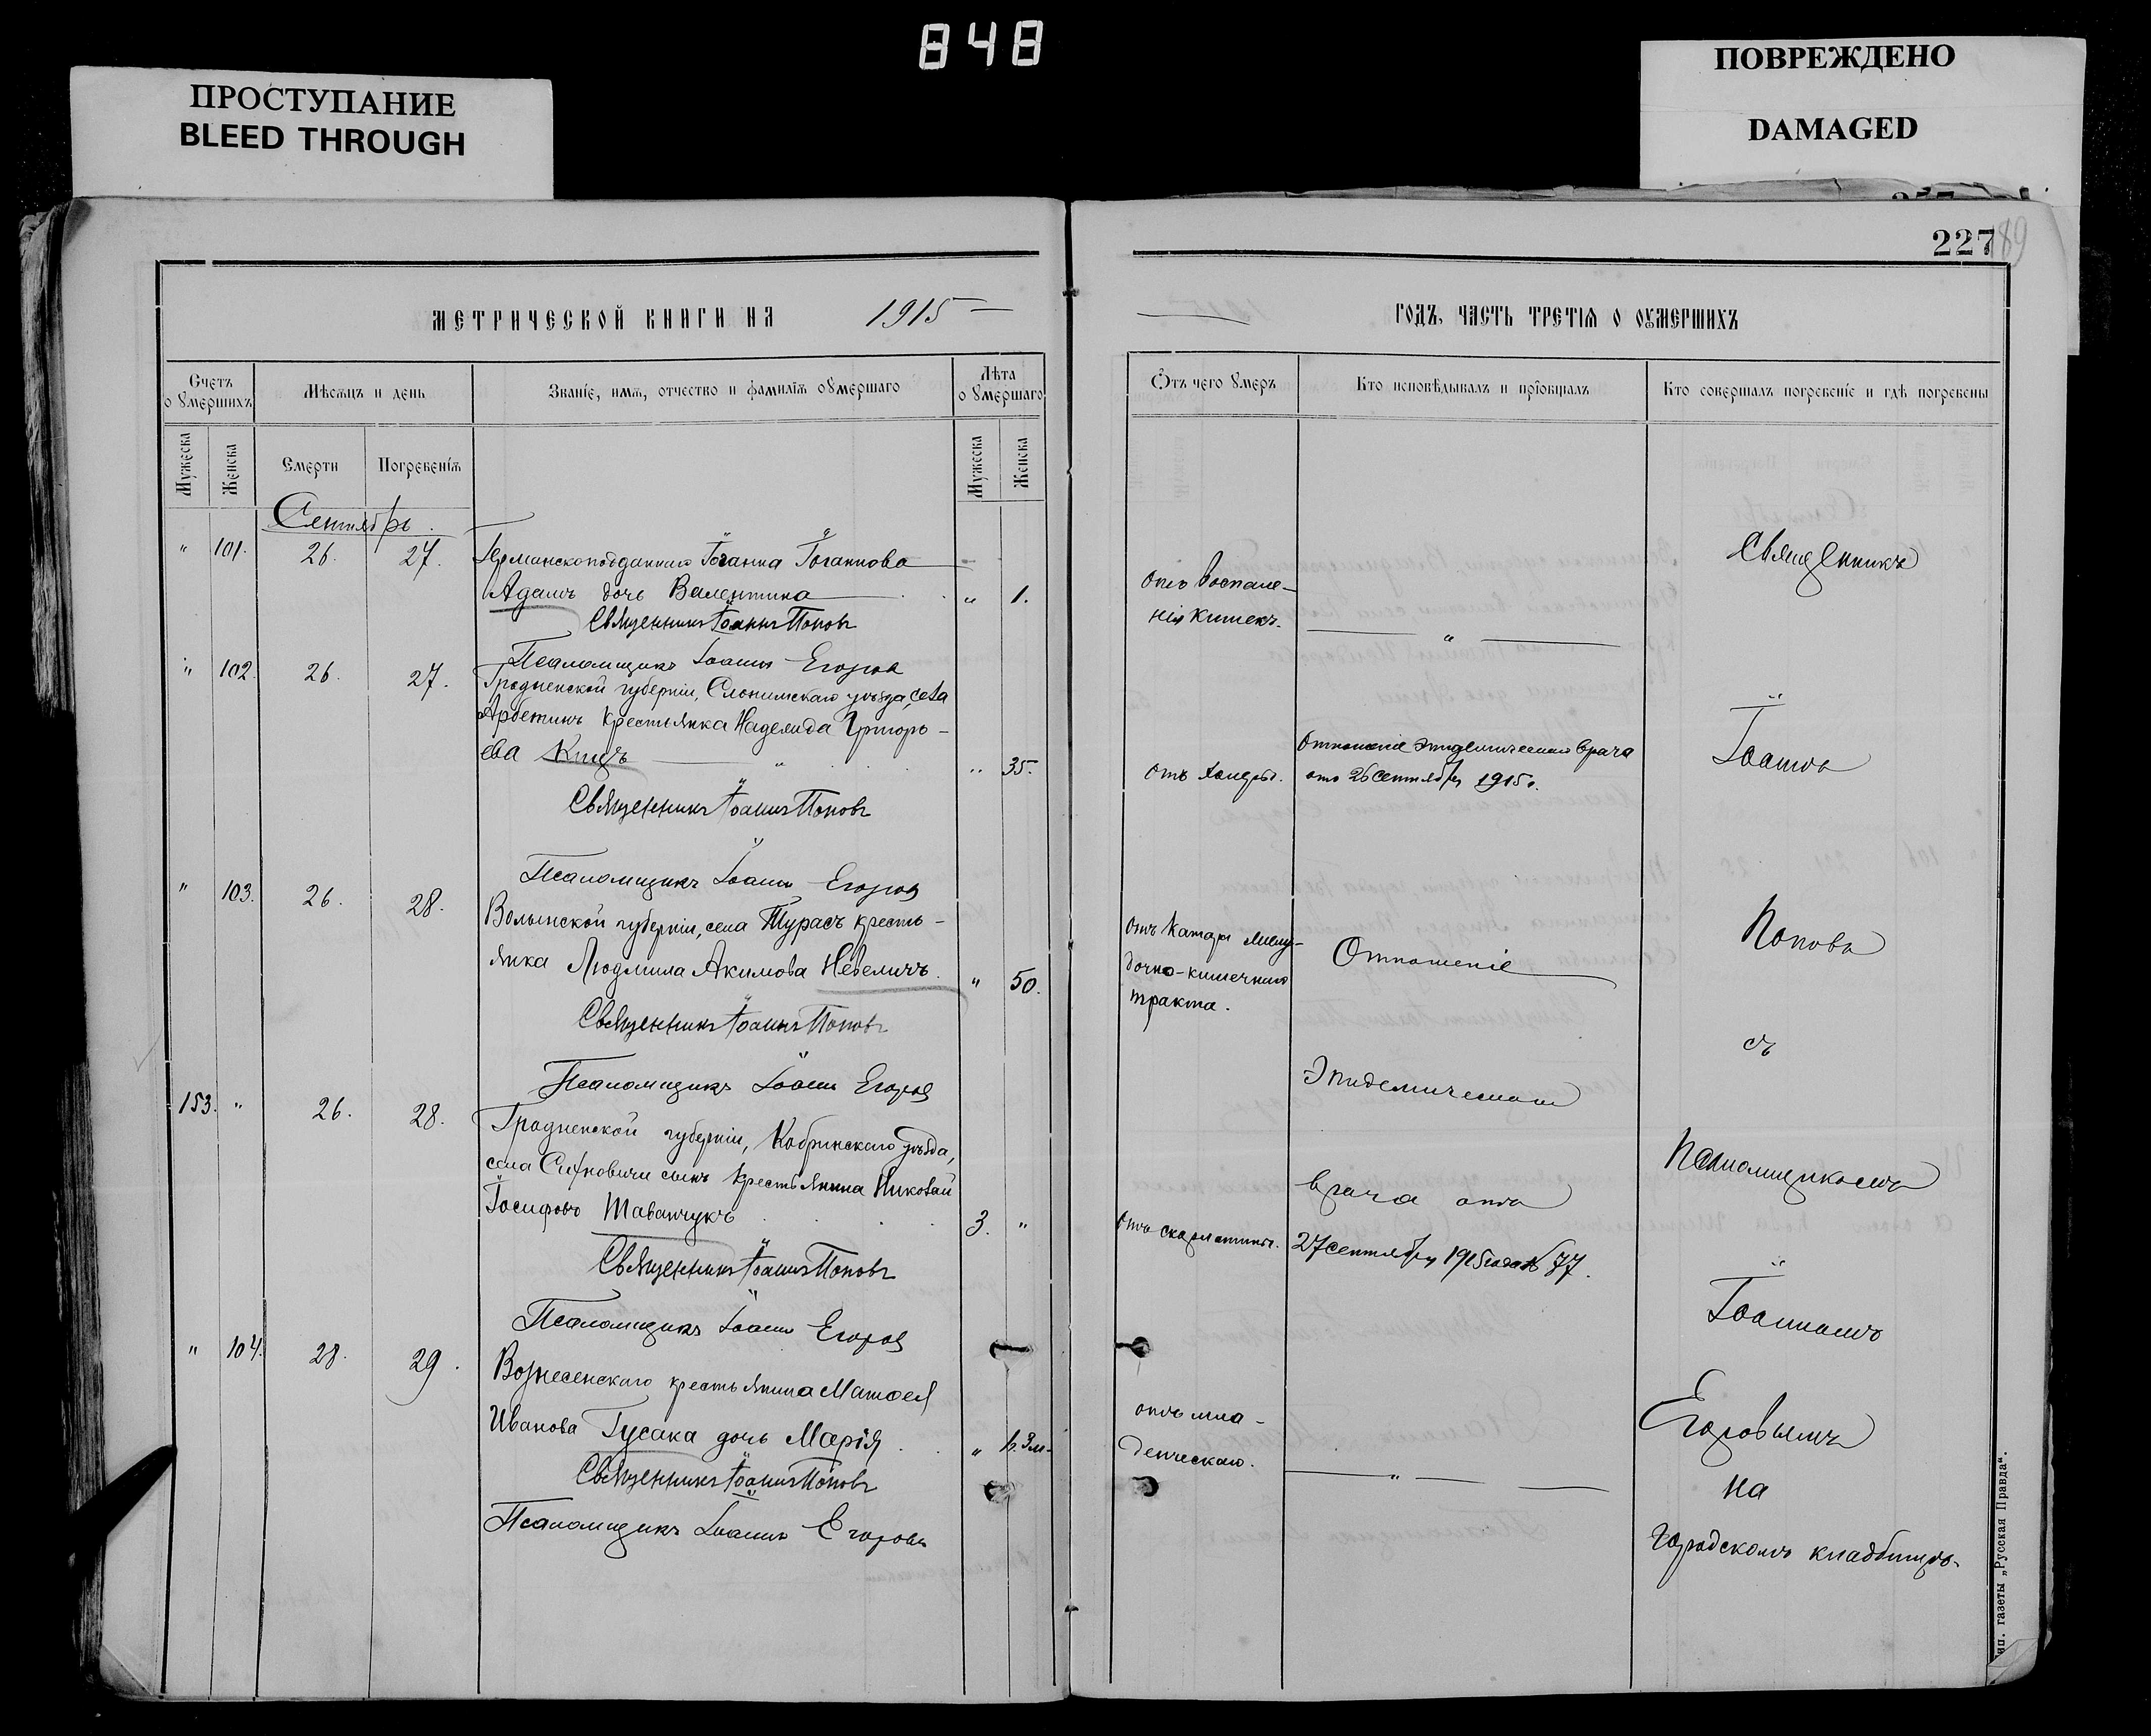 848
ПРОСТУПАНИЕ
BLEED THROUGH
ПОВРЕЖДЕНО
DAMAGED
227
89
МЕТРИЧЕСКОЙ КНИГИ НА 1915
Счетъ оумершихъ
Мѣсяцъ и день
Званіе, имя, отчество и фамилія оумершаго
Лѣта оумершаго
Мужеска
Женска
Смерти
Погребенія
Мужеска
Женска
Сентябрь.
" 101. 26. 27. Германскоподданнаго Іоганна Іоганнова
Адамъ дочь Валентина " 1.
Священникъ Іоаннъ Поповъ
Псаломщикъ Іоаннъ Егоровъ
" 102. 26. 27. Гродненской губерніи, Слонимскаго уѣзда, села
крестьянка Надежда Григорь-
ева Кицъ " 35.
Священникъ Іоаннъ Поповъ
Псаломщикъ Іоаннъ Егоровъ
" 103. 26. 28. Волынской губерніи, села Турасъ кресть-
янка Людмила Акимова Невеличъ. " 50.
Священникъ Іоаннъ Поповъ
Псаломщикъ Іоаннъ Егоровъ
153. " 26. 28. Гродненской губерніи, Кобринскаго уѣзда,
села сынъ крестьянина Николай
Іосифовъ 3. "
Священникъ Іоаннъ Поповъ
Псаломщикъ Іоаннъ Егоровъ
" 104. 28. 29. Вознесенскаго крестьянина Матвея
Иванова Гусака дочь Марія. " 3м.
Священникъ Іоаннъ Поповъ
Псаломщикъ Іоаннъ Егоровъ
ГОДЪ, ЧАСТЬ ТРЕТІЯ О ОУМЕРШИХЪ
Отъ чего умеръ
Кто исповѣдывалъ и пріобщалъ
Кто совершалъ погребеніе и гдѣ погребены
отъ воспале-
нія кишекъ.
"
отъ холеры.
Отношеніе эпидемическаго врача
отъ 26 сентября 1915г.
отъ катара желу-
дочно-кишечнаго
тракта.
Отношеніе
эпидемическаго
врача отъ
отъ скарлатины.
27 сентября 1915 года № 77.
отъ мла-
денческаго.
"
Священникъ
Іоаннъ
Поповъ
съ
Псаломщикомъ
Іоанномъ
Егоровымъ
на
городскомъ кладбищѣ.
тип. газеты „Русская Правда“.